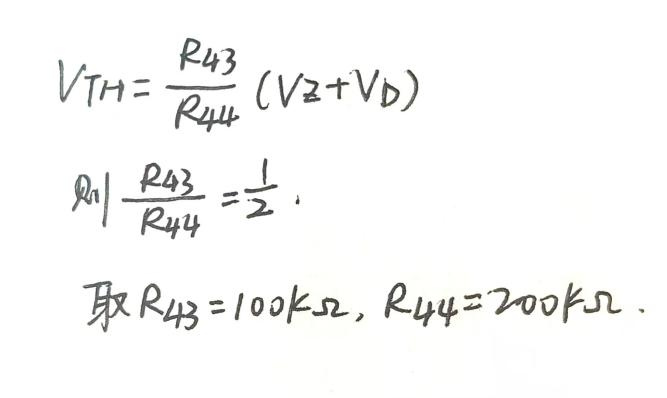 V_TH = R43/R44 (Vz+VD)
则 R43/R44 = 1/2.
取 R43=100kΩ, R44=200kΩ.